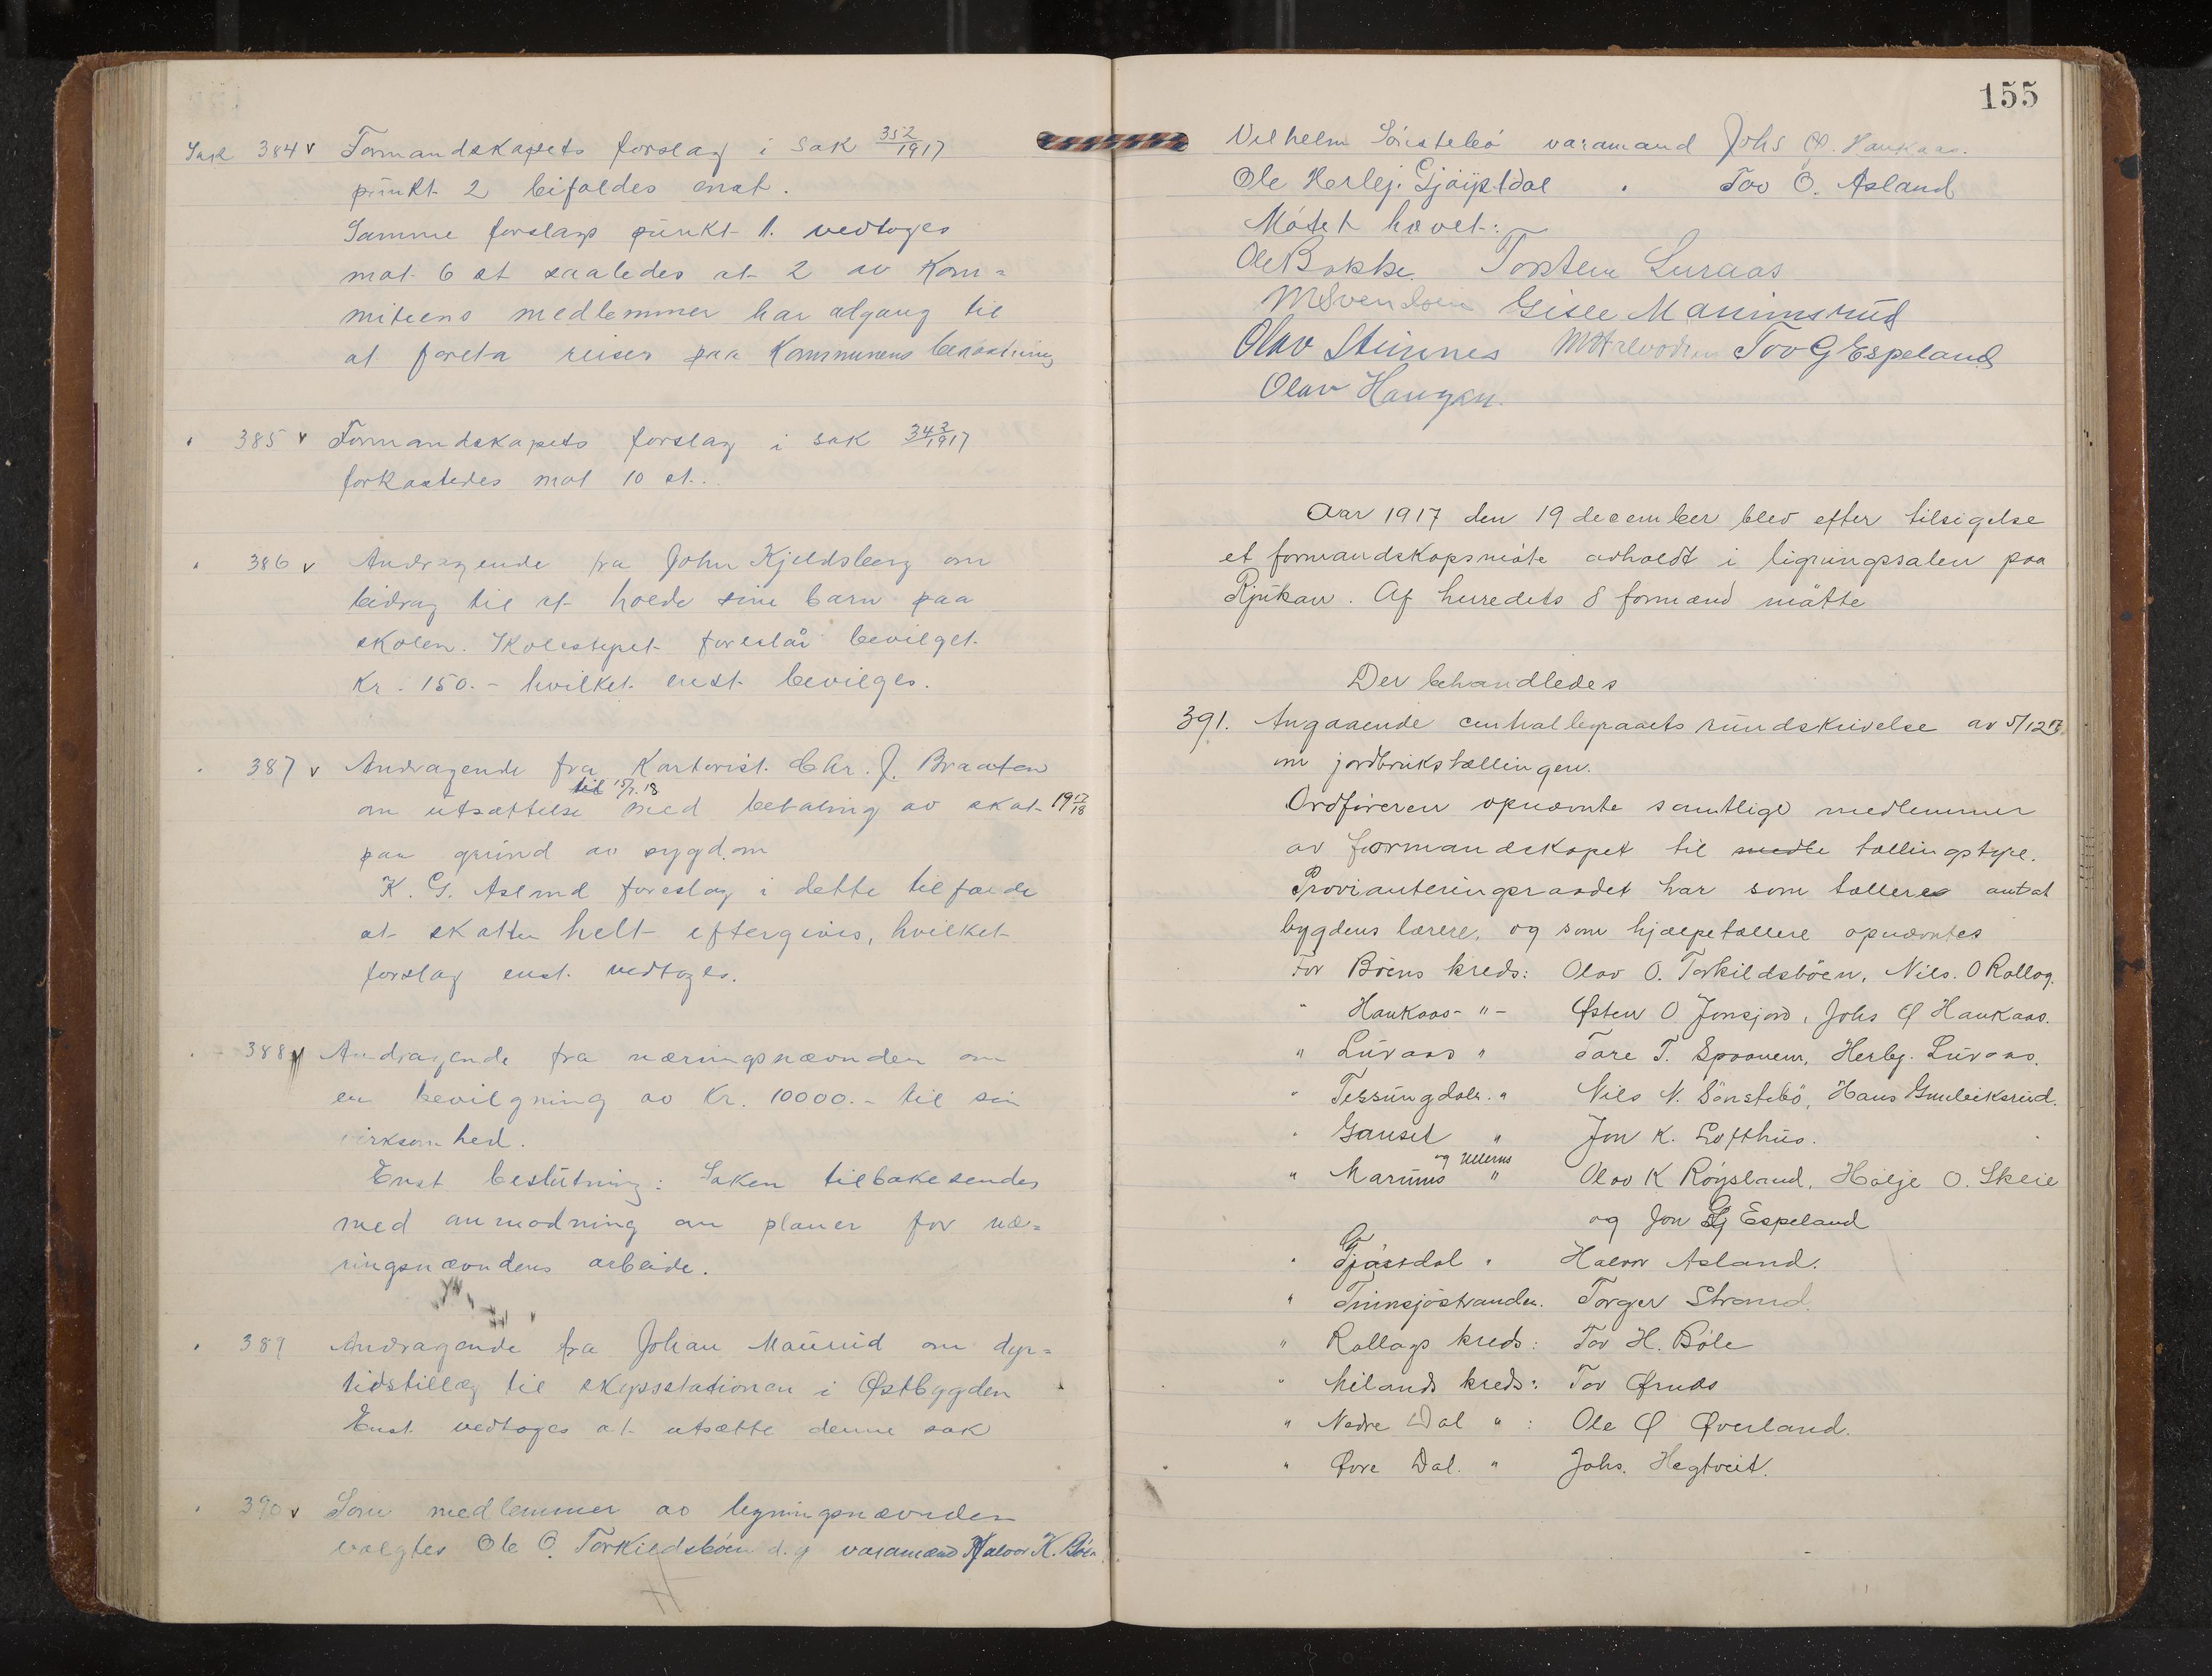 Sak 384 v Formandskapets forslag i sak 352/1917
punkt 2 bifaldes enst.
Samme forslags punkt 1. vedtoges
mot 6 st saaledes at 2 av Kom=
miteens medlemmer har adgang til
at foreta reiser paa Kommunens bekostning
" 385 v Formandskapets forslag i sak 343/1917
forkastedes mot 10 st.
" 386 v Andragende fra John Kjeldsberg om
bidrag til at holde sine barn paa
skolen. Skolestyret foreslår bevilget
Kr. 150.- hvilket enst bevilges.
" 387 v Andragende fra Kontorist. Chr. J. Braaten
til 15/7. 18
om utsættelse med betaling av skat 1917/18
paa grund av sygdom
K. G. Asland foreslog i dette tilfælde
at skatten helt eftergives, hvilket
forslag enst. vedtoges.
" 388 v Andragende fra næringsnævnden om
en bevilgning av Kr. 10000.- til sin
virksomhed.
Enst beslutning: Saken tilbakesendes
med anmodning om planer for næ=
ringsnævndens arbeide.
" 389 Andragende fra Johan Maurud om dyr=
tidstillæg til skysstationen i Østbygden
Enst. vedtoges at utsætte denne sak
" 390 v Som medlemmer av ligningsnævnden
valgtes Ole O. Torkildsbøen d.y varamand Halvor K. Bøen.
155
Vilhelm Sønstebø varamand Johs Ø. Haukaas.
Ole Herlej. Gjøystdal " Tov O. Asland
Møtet hævet:
Ole Bakke Torstein Luraas
M Svendsen Gisle Marumsrud
Olav Steinnes M Halvorsen Tov G Espeland
Olav Haugen.
Aar 1917 den 19 december blev efter tilsigelse
et formandskapsmøte avholdt i ligningssalen paa
Rjukan. Af herredets 8 formænd møtte
Der behandledes
391. Angaaende centralbyraaets rundskrivelse av 5/12 17
om jordbrukstællingen.
Ordføreren opnævnte samtlige medlemmer
av formandskapet til medle tællingstyre.
Provianteringsraadet har som tællere antat
bygdens lærere, og som hjælpetællere opnævntes
For Bøens kreds: Olav O. Torkildsbøen, Nils. O Rollag.
" Haukaas- "- Østen O Jonsjord, Johs Ø Haukaas.
" Luraas " Tore T. Spaanem, Herbg. Luraas.
" Tessungdals. " Nils N. Sønstebø, Hans Gunleiksrud.
" Gauset " Jon K. Lofthus.
og Ullerns
" Marums " Olav K Røysland, Hølje O. Skeie
og Jon G Espeland
" Gjøsdal " Halvor Asland.
" Tinnsjøstranden. Torger Strand.
" Rollags kreds: Tov H. Bøle
" Milands kreds: Tov Ørnes
" Nedre Dal " : Ole Ø Øverland.
" Øvre Dal. " Johs. Hegtveit.